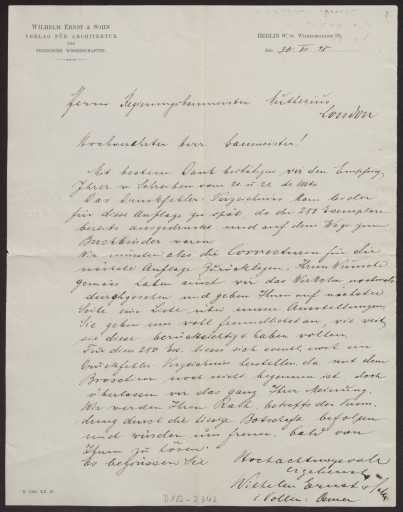 WILHELM ERNST & SOHN
VERLAG FÜR ARCHITEKTUR
UND
TECHNISCHE WISSENSCHAFTEN.
BERLIN W.
Herrn Regierungsbaumeister Muthesius
London
Hochverehrter Herr Baumeister!
Mit bestem Dank bestätigen wir den Empfang
Ihrer Schreiben vom 20 u 22 ds Mts.
Das Druckfehler Verzeichniss kam leider
für diese Auflage zu spät, da die 250 Exemplare
bereits ausgedruckt und auf dem Wege zum
Buchbinder waren
Wir mussten also die Correcturen für die
nächste Auflage zurücklegen. Ihrem Wunsche
gemäss haben auch wir das Werkchen nochmals
durchgesehen und geben Ihnen auf nächster
Seite eine Liste unserer Ausstellungen
Sie geben uns wohl freundlichst an, wie weit
sie diese berücksichtigt haben wollen.
Für diese 250 liesse sich event. noch ein
Druckfehler Verzeichniss herstellen, da mit dem
Broschiren noch nicht begonnen ist doch
überlassen wir das ganz Ihrer Meinung.
Wir werden Ihren Rath, betreffs der
durch die Botschaft befolgen
und würden uns freuen, bald von
Ihnen zu hören.
Es begrüssen Sie
Hochachtungsvoll
Ergebenst
Wilhelm Ernst & Sohn